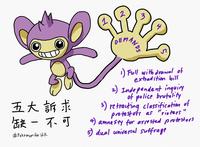 1 2 3 4 5
DEMANDS
1) Full withdrawal of
extradition bill
2) Independent inquiry
of police brutality
3) retracting classification of
protesters as "riots"
4) amnesty for arrested protesters
5) dual universal suffrage
五大訴求
缺一不可